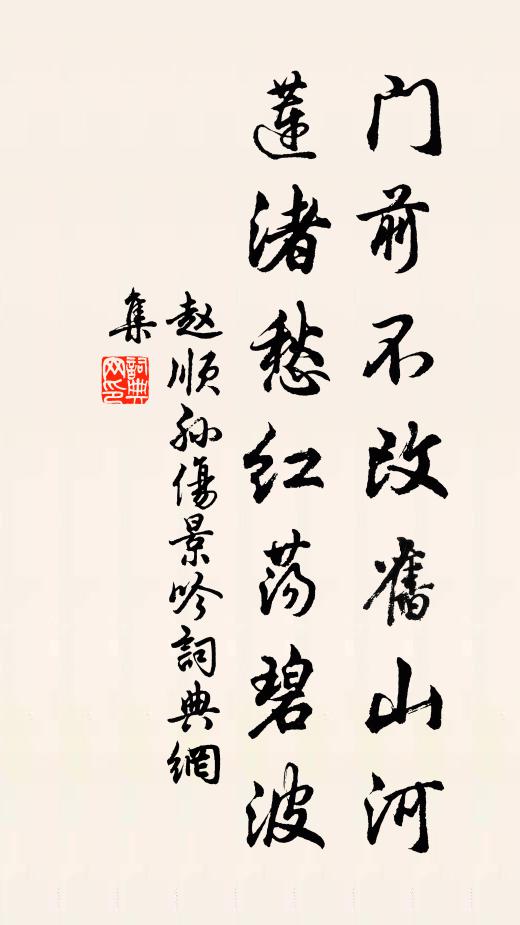 门前不改舊山河
蓮渚愁红荡碧波
赵順孙傷景吟詞典網
集
詞典
网印